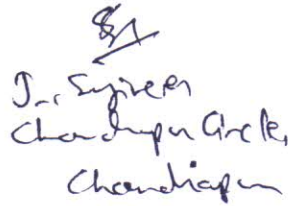 J.. Engineer
Chandrapur Circle,
Chandrapur